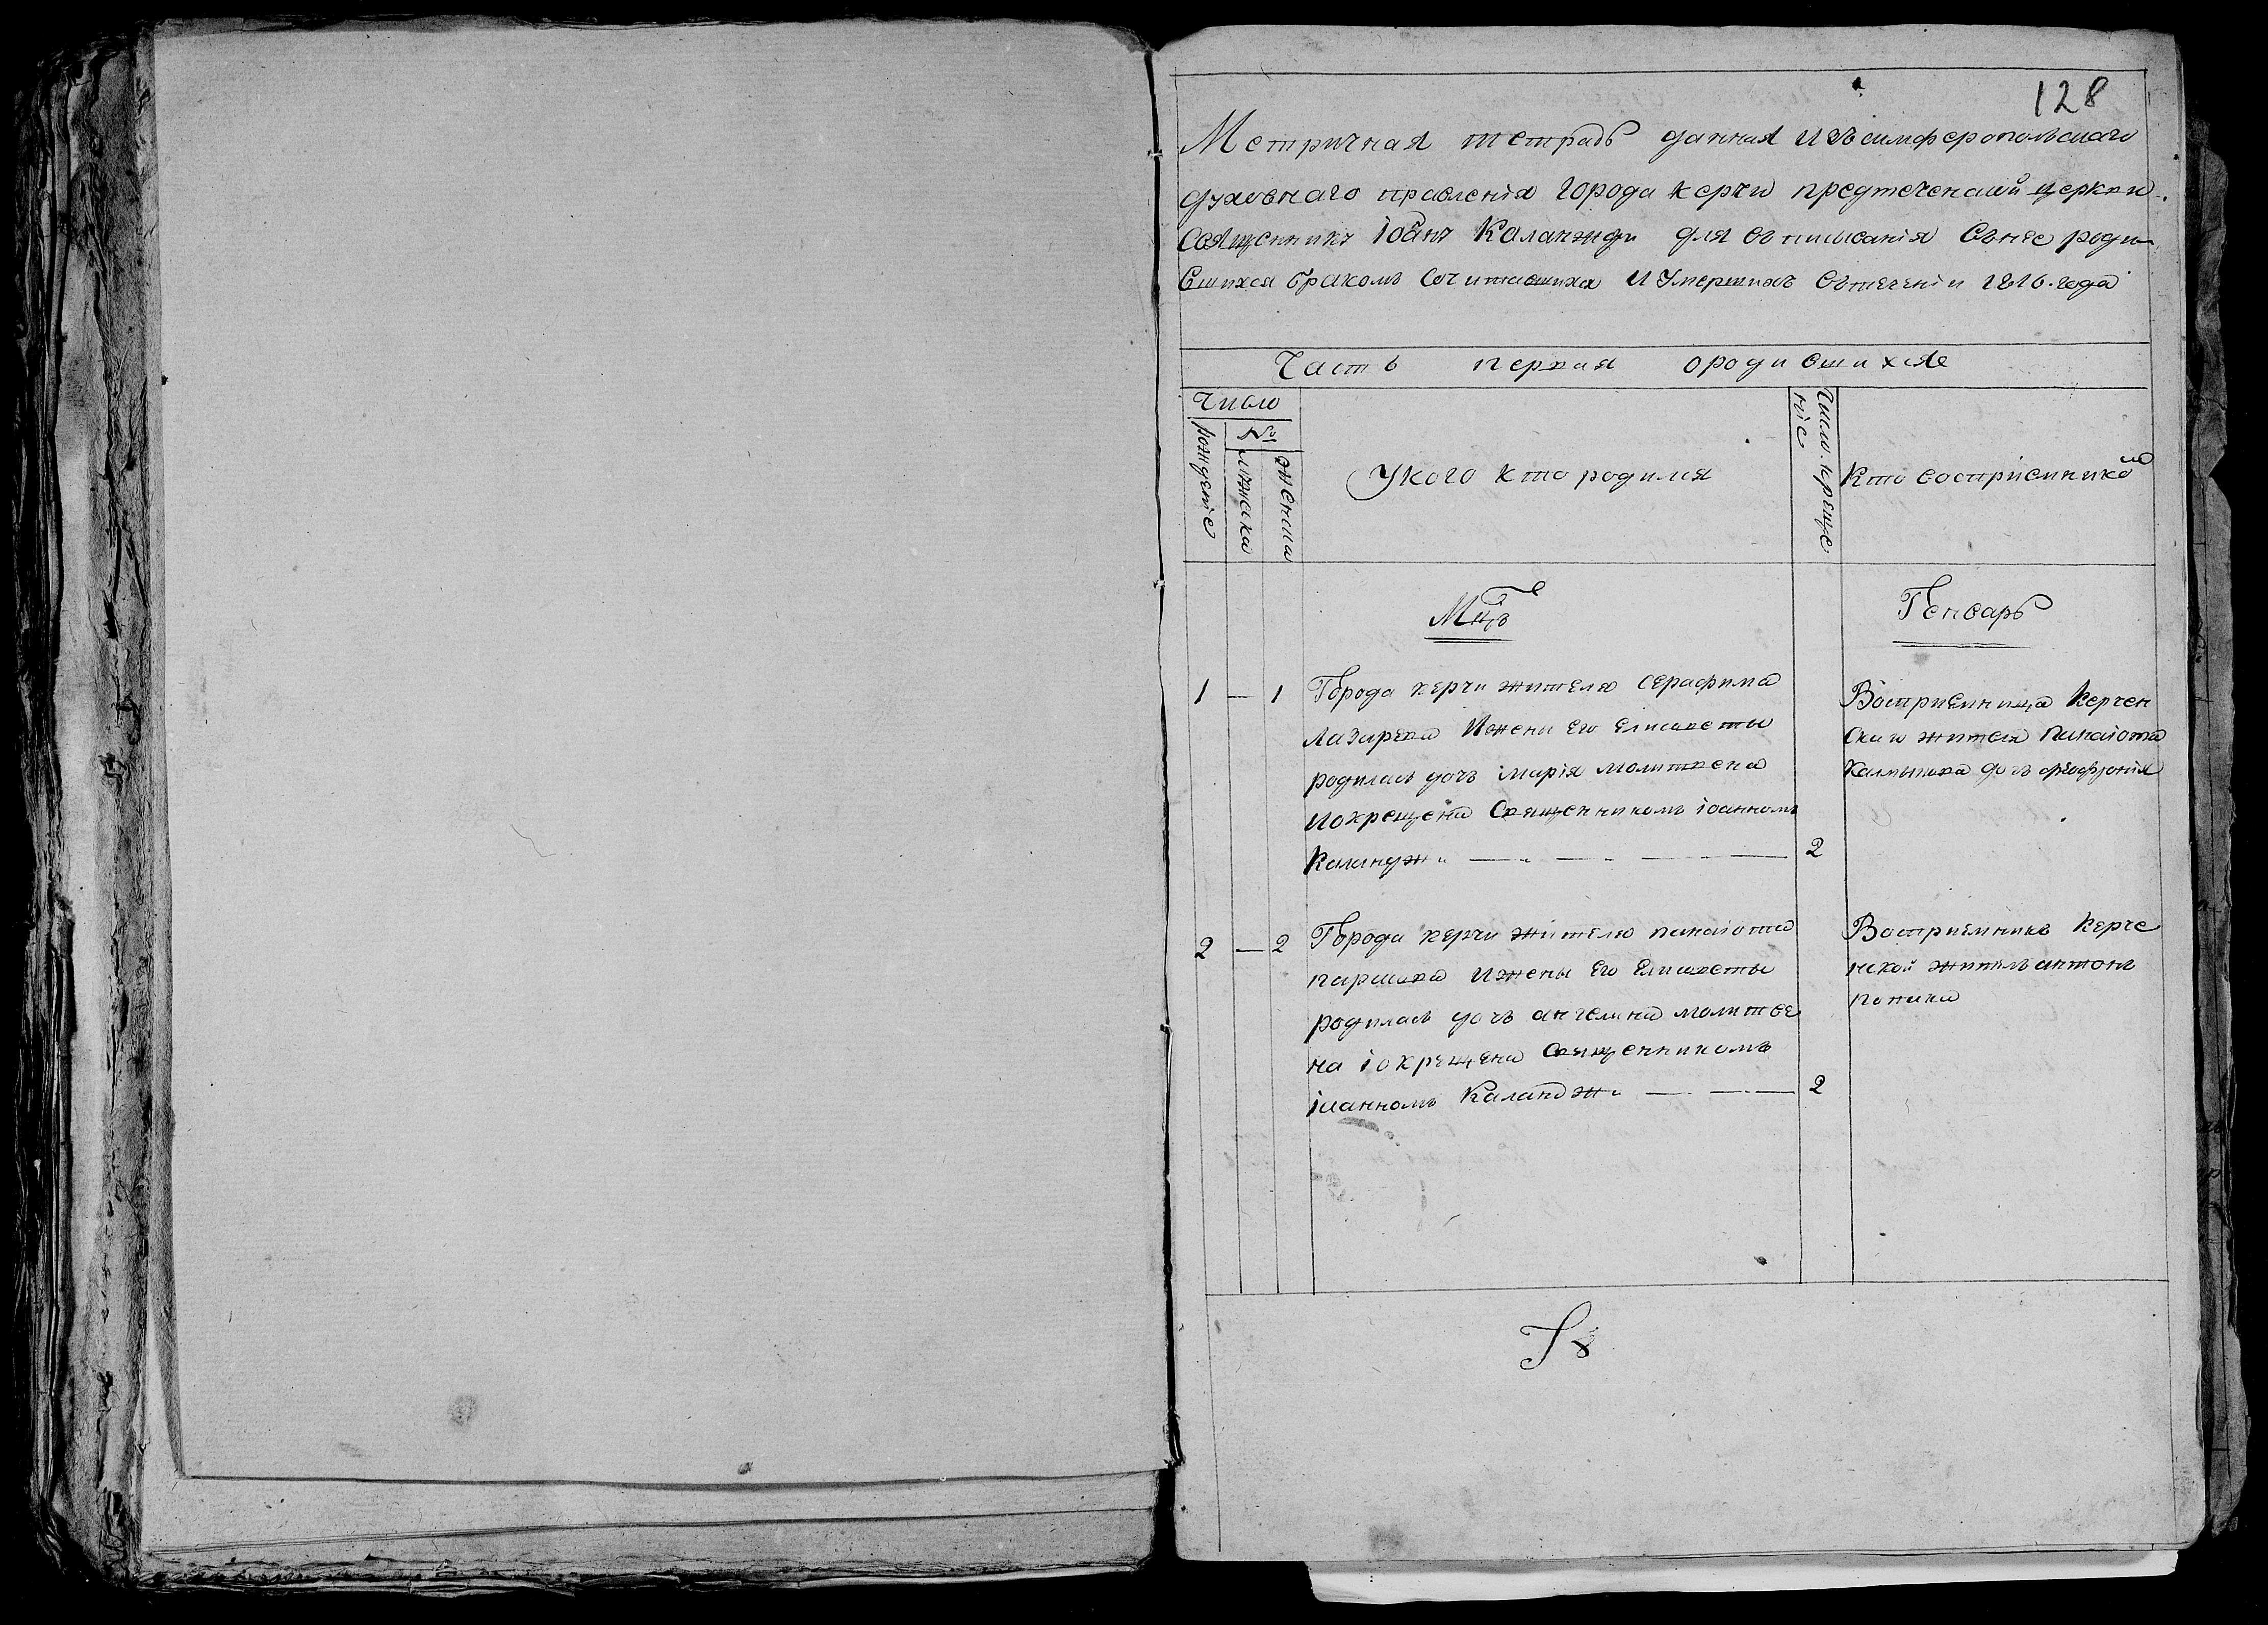 128
Метричная тетрадь данная Изъ симферопольскаго
духовнаго правленія города керчи предтеченской церкви
Священнику Іоанъ Каланжди для вписыванія Вънее роди
Вшихся бракомъ Сочитавшихся И Умершихъ Втеченіи 1816. года
Часть первая ородившихся
Число
№
рожденіе
мужска
женска
Укого кто родился
Число. креще
ніе
Кто восприемникъ
Мцъ
Генварь
1 — 1
Города керчи жителя серафима
Лазарева Ижени Его Елисаветы
родилась дочь марія молитвена
Иокрещена Священникомъ іоанномъ
Каланджи
2
Восприемница Керчен
Скаго жителя Панаіота
Калмыкова дочь
2 — 2
Города керчи жителю панаіота
Ижены Его Елисаветы
родилась дочь ангелина молитве
на іокрещена Священникомъ
іианномъ Каланджи
2
Восприемникъ Керче
нской житель антонъ
попика